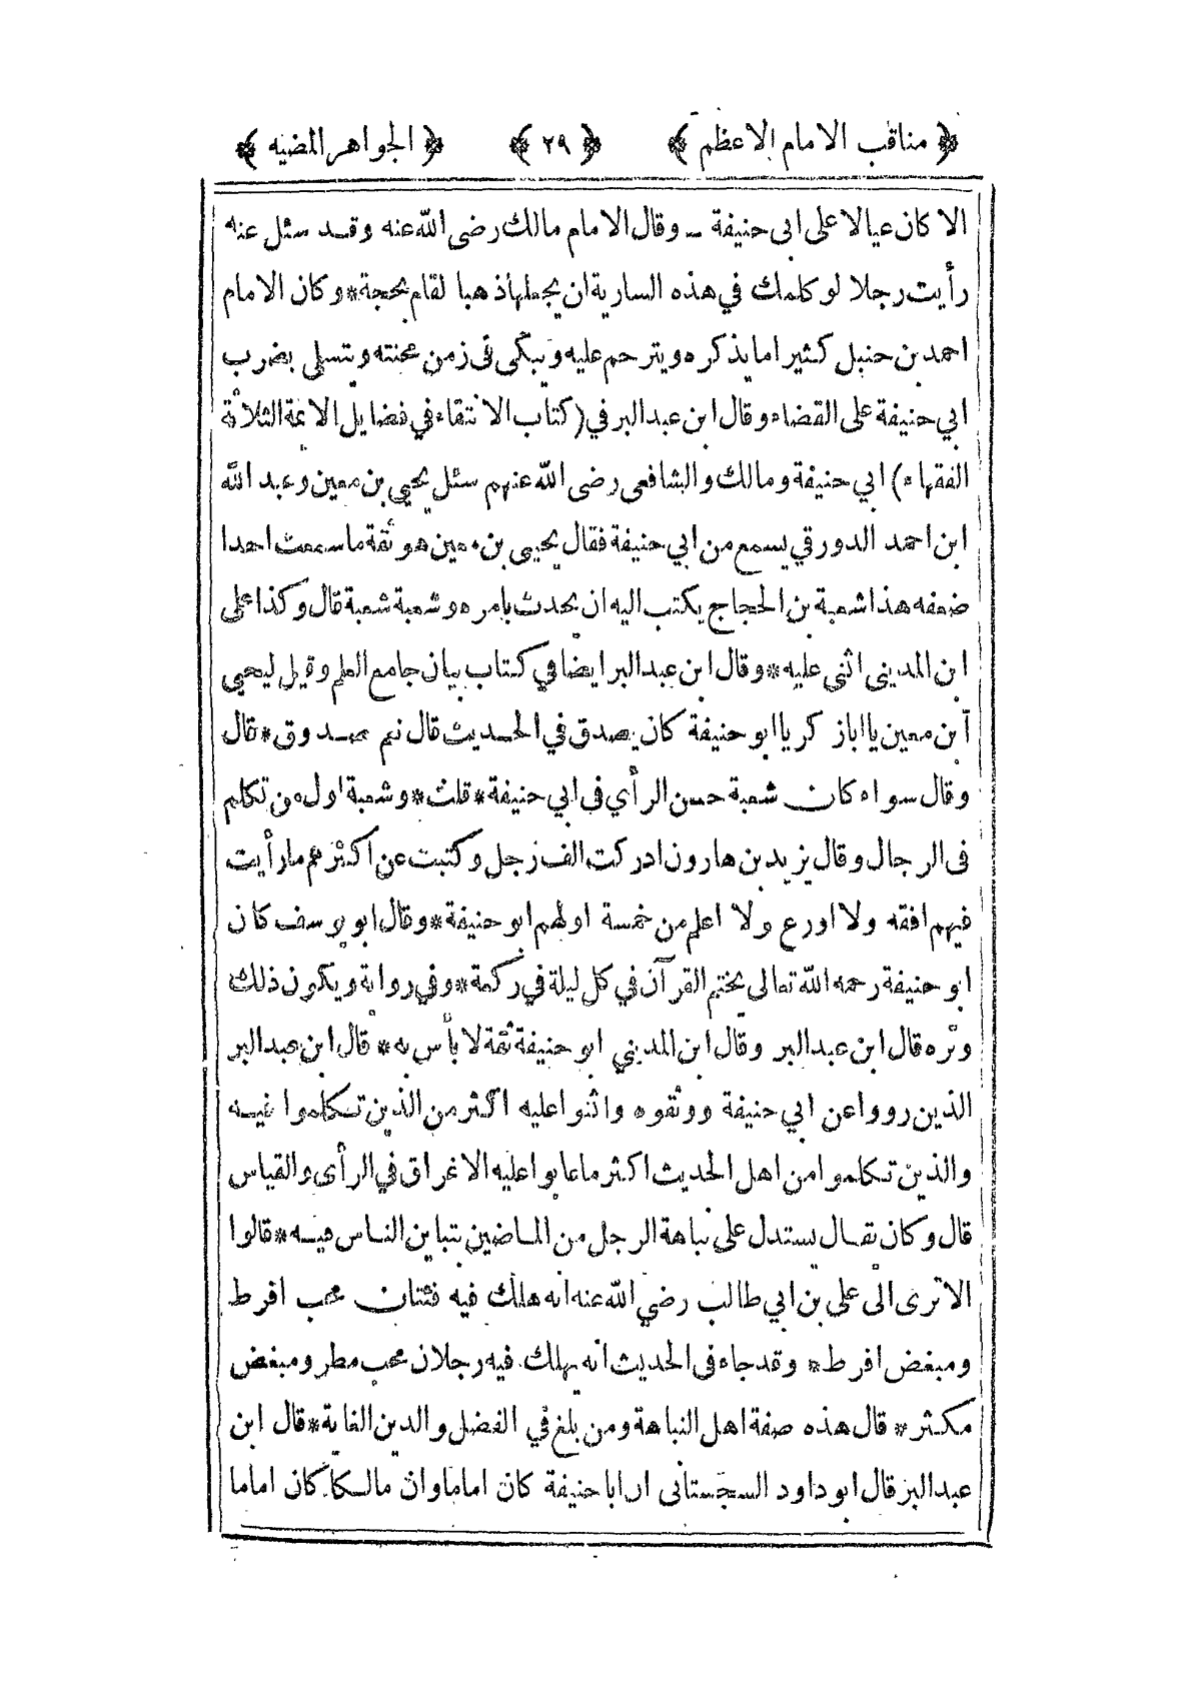 ﴿ مناقب الامام الاعظم ﴾ ﴿ ٢٩ ﴾ ﴿ الجواهر المضيه ﴾
الا كان عيالا على ابى حنيفة ـ وقال الامام مالك رضى الله عنه وقد سئل عنه
رأيت رجلا لو كلمك في هذه السارية ان يجعلها ذهبا لقام بحجة * وكان الامام
احمد بن حنبل كثيرا ما يذكره ويترحم عليه ويبكى فى زمن محنته ويتسلى بضرب
ابي حنيفة على القضاء وقال ابن عبد البر في (كتاب الانتقاء في فضايل الائمة الثلاثة
الفقهاء) ابي حنيفة ومالك والشافعى رضى الله عنهم سئل يحيى بن معين وعبد الله
ابن احمد الدورقي يسمع من ابي حنيفة فقال يحيى بن معين هو ثقة ما سمعت احدا
ضعفه هذا شعبة بن الحجاج يكتب اليه ان يحدث بامره وشعبة شعبة قال وكذا على
ابن المدينى اثنى عليه * وقال ابن عبد البر ايضا في كتاب بيان جامع العلم وقيل ليحيى
ابن معين يا ابا زكريا ابو حنيفة كان يصدق في الحديث قال نعم صدوق * قال
وقال سواه كان شعبة حسن الرأي فى ابي حنيفة * قلت * وشعبة اول من تكلم
فى الرجال وقال يزيد بن هارون ادركت الف رجل وكتبت عن اكثرهم ما رأيت
فيهم افقه ولا اورع ولا اعلم من خمسة اولهم ابو حنيفة * وقال ابو يوسف كان
ابو حنيفة رحمه الله تعالى يختم القرآن في كل ليلة في ركعة * وفي رواية ويكون ذلك
وتره قال ابن عبد البر وقال ابن المديني ابو حنيفة ثقة لا بأس به * قال ابن عبد البر
الذين رووا عن ابي حنيفة ووثقوه واثنوا عليه اكثر من الذين تكلموا فيه
والذين تكلموا من اهل الحديث اكثر ما عابوا عليه الاغراق في الرأى والقياس
قال وكان يقال يستدل على نباهة الرجل من الماضين بتباين الناس فيه * قالوا
الا ترى الى على بن ابي طالب رضي الله عنه انه هلك فيه فئتان محب افرط
ومبغض افرط * وقد جاء فى الحديث انه يهلك فيه رجلان محب مطر ومبغض
مكثر * قال هذه صفة اهل النباهة ومن بلغ في الفضل والدين الغاية * قال ابن
عبد البر قال ابو داود السجستانى ان ابا حنيفة كان اماما وان مالكا كان اماما